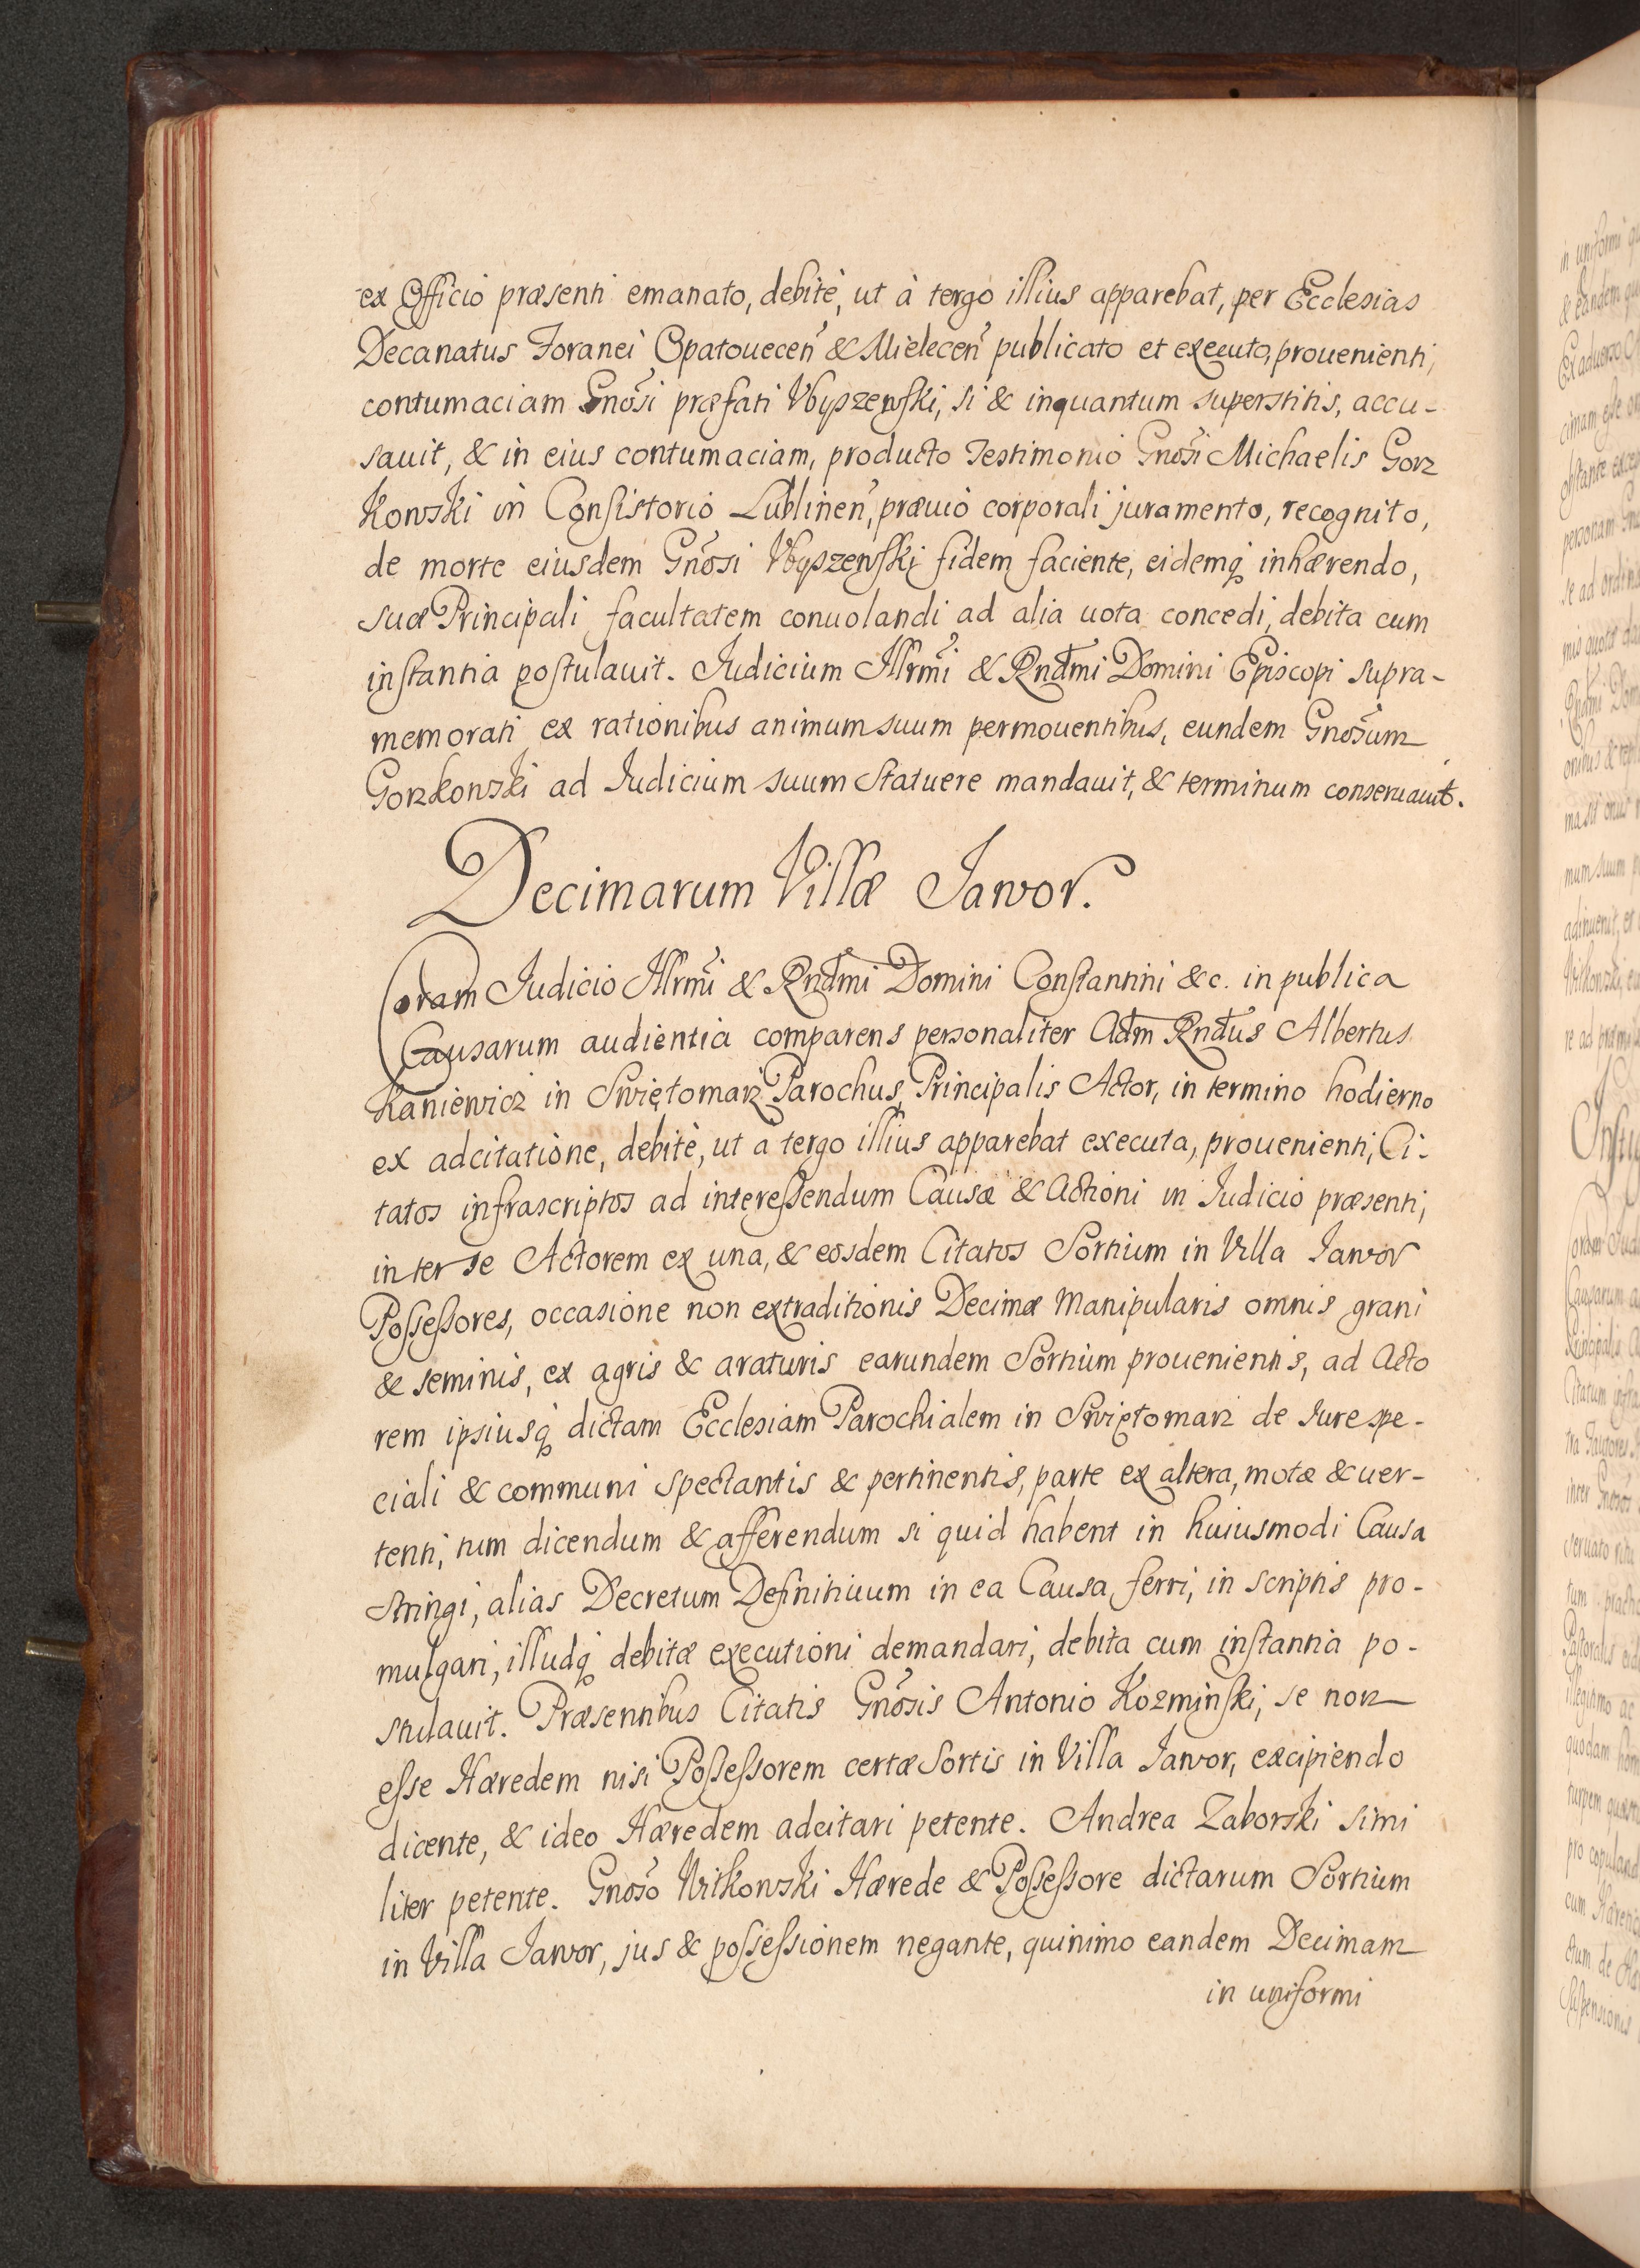 ex Officio præsenti emanato, debitè, ut à tergo illius apparebat, per Ecclesias
Decanatus Foranei Opatouecen̄ & Mielecen̄ publicato et executo, prouenienti,
contumaciam Gnōsi præfati Vbyszewski, si & inquantum superstitis, accu-
sauit, & in eius contumaciam, producto Testimonio Gnōsi Michaelis Gorz
kowski in Consistorio Lublinen̄, præuio corporali juramento, recognito,
de morte eiusdem Gnōsi Vbyszewski fidem faciente, eidemq̢ inhærendo,
suæ Principali facultatem conuolandi ad alia uota concedi, debita cum
instantia postulauit. Iudicium Illrm̄i & Rnd̄mi Domini Episcopi supra-
memorati ex rationibus animum suum permouentibus, eundem Gnōsum
Gorzkowski ad Iudicium suum statuere mandauit, & terminum conseruauit.
Decimarum Villæ Jawor.
Coram Iudicio Illrm̄i & Rnd̄mi Domini Constantini &c. in publica
Causarum audientia comparens personaliter Ad̄m Rnd̄us Albertus
Kaniewicz in Swiętomarz Parochus, Principalis Actor, in termino hodierno
ex adcitatione, debitè, ut a tergo illius apparebat executa, prouenienti, Ci-
tatos infrascriptos ad interessendum Causæ & Actioni in Iudicio præsenti,
inter se Actorem ex una, & eosdem Citatos Sortium in Villa Jawor
Possessores, occasione non extraditionis Decimæ Manipularis omnis grani
& seminis, ex agris & araturis earundem Sortium prouenientis, ad Acto
rem ipsiusq̢ dictam Ecclesiam Parochialem in Swiętomarz de Iure spe-
ciali & communi spectantis & pertinentis, parte ex altera, motæ & uer-
tenti, tum dicendum & afferendum si quid habent in huiusmodi Causa
stringi, alias Decretum Definitiuum in ea Causa ferri, in scriptis pro-
mulgari, illudq̢ debitæ executioni demandari, debita cum instantia po-
stulauit. Præsentibus Citatis Gnōsis Antonio Kozminski, se non
esse Hæredem nisi Possessorem certæ Sortis in Villa Jawor, excipiendo
dicente, & ideo Hæredem adcitari petente. Andrea Zaborski simi
liter petente. Gnōso Witkowski Hærede & Possessore dictarum Sortium
in Villa Jawor, jus & possessionem negante, quinimo eandem Decimam
in uniformi